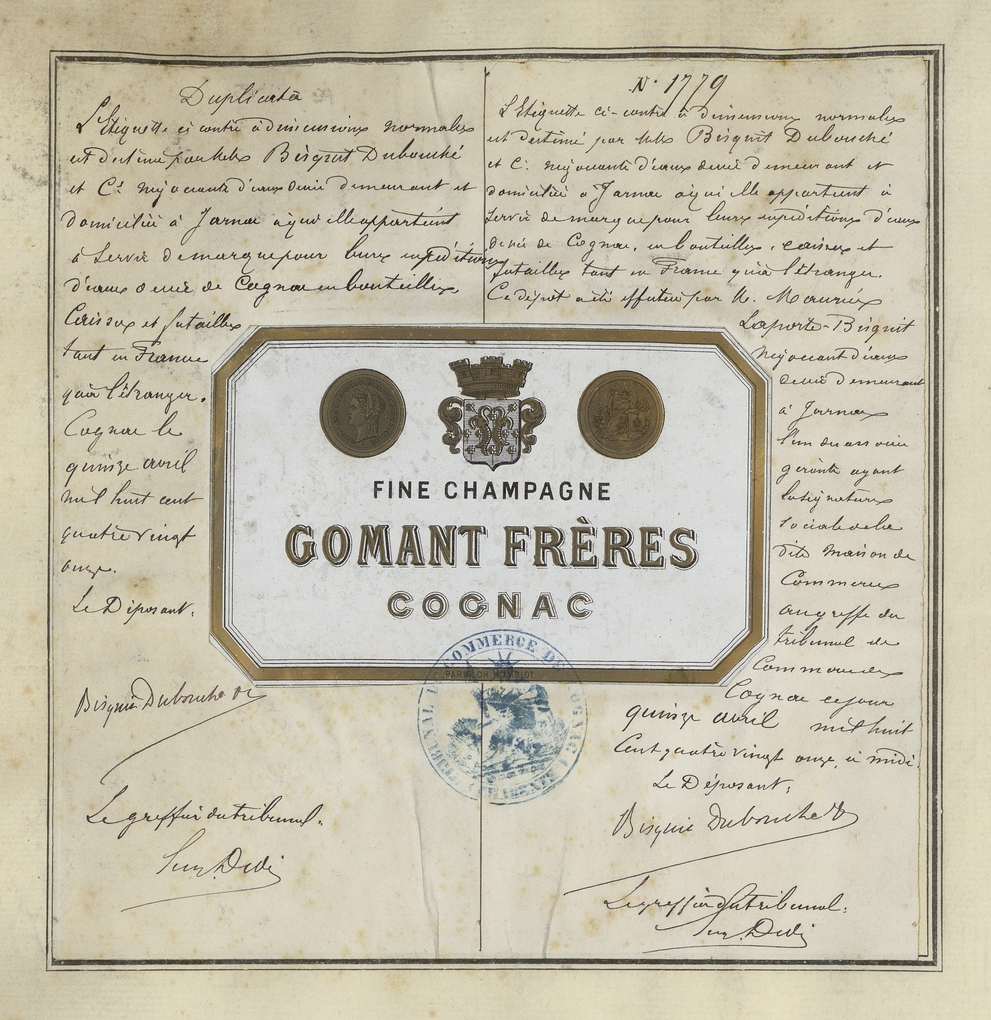 Duplicata
L'Etiquette ci contre à dimensions normales
est destinée par MM Bisquit Dubouché
et Cie négociants d'eaux de vie demeurant et
domiciliés à Jarnac à qui elle appartient
à servir de marque pour leurs expéditions
d'eaux de vie de Cognac en bouteilles,
Caisses et futailles
tant en France
qu'à l'étranger.
Cognac le
quinze avril
mil huit cent
quatre vingt
onze.
Le Déposant.
Bisquit Dubouché &
Le greffier du tribunal.
N° 1779
L'Etiquette ci-contre à dimensions normales
est destinée par MM Bisquit Dubouché
et Cie négociants d'eaux de vie demeurant et
domiciliés à Jarnac à qui elle appartient à
servir de marque pour leurs expéditions d'eaux
de vie de Cognac, en bouteilles, caisses et
futailles tant en France qu'à l'étranger.
Ce dépôt a été effectué par M. Maurice
Laporte-Bisquit
négociant d'eaux
de vie demeurant
à Jarnac
l'un des associés
gérants ayant
la signature
sociale de la
dite maison de
Commerce
au greffe du
tribunal de
Commerce de
Cognac ce jour
quinze avril mil huit
cent quatre vingt onze, à midi.
Le Déposant.
Bisquit Dubouché &
Le greffier du tribunal.
FINE CHAMPAGNE
GOMANT FRÈRES
COGNAC
PARIS CH HUMBLOT
TRIBUNAL DE COMMERCE DE COGNAC